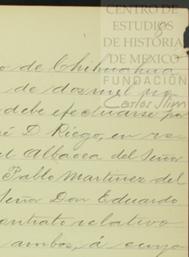 CENTRO DE
ESTUDIOS
DE HISTORIA
DE MEXICO
FUNDACIÓN
Carlos Slim
o de Chihuahua
de dos mil
debe efectuarse por
D. Riego, en
el Albacea del Señor
Pablo Martinez del
Señor Don Eduardo
contrato relativo
ambos, á cuyo